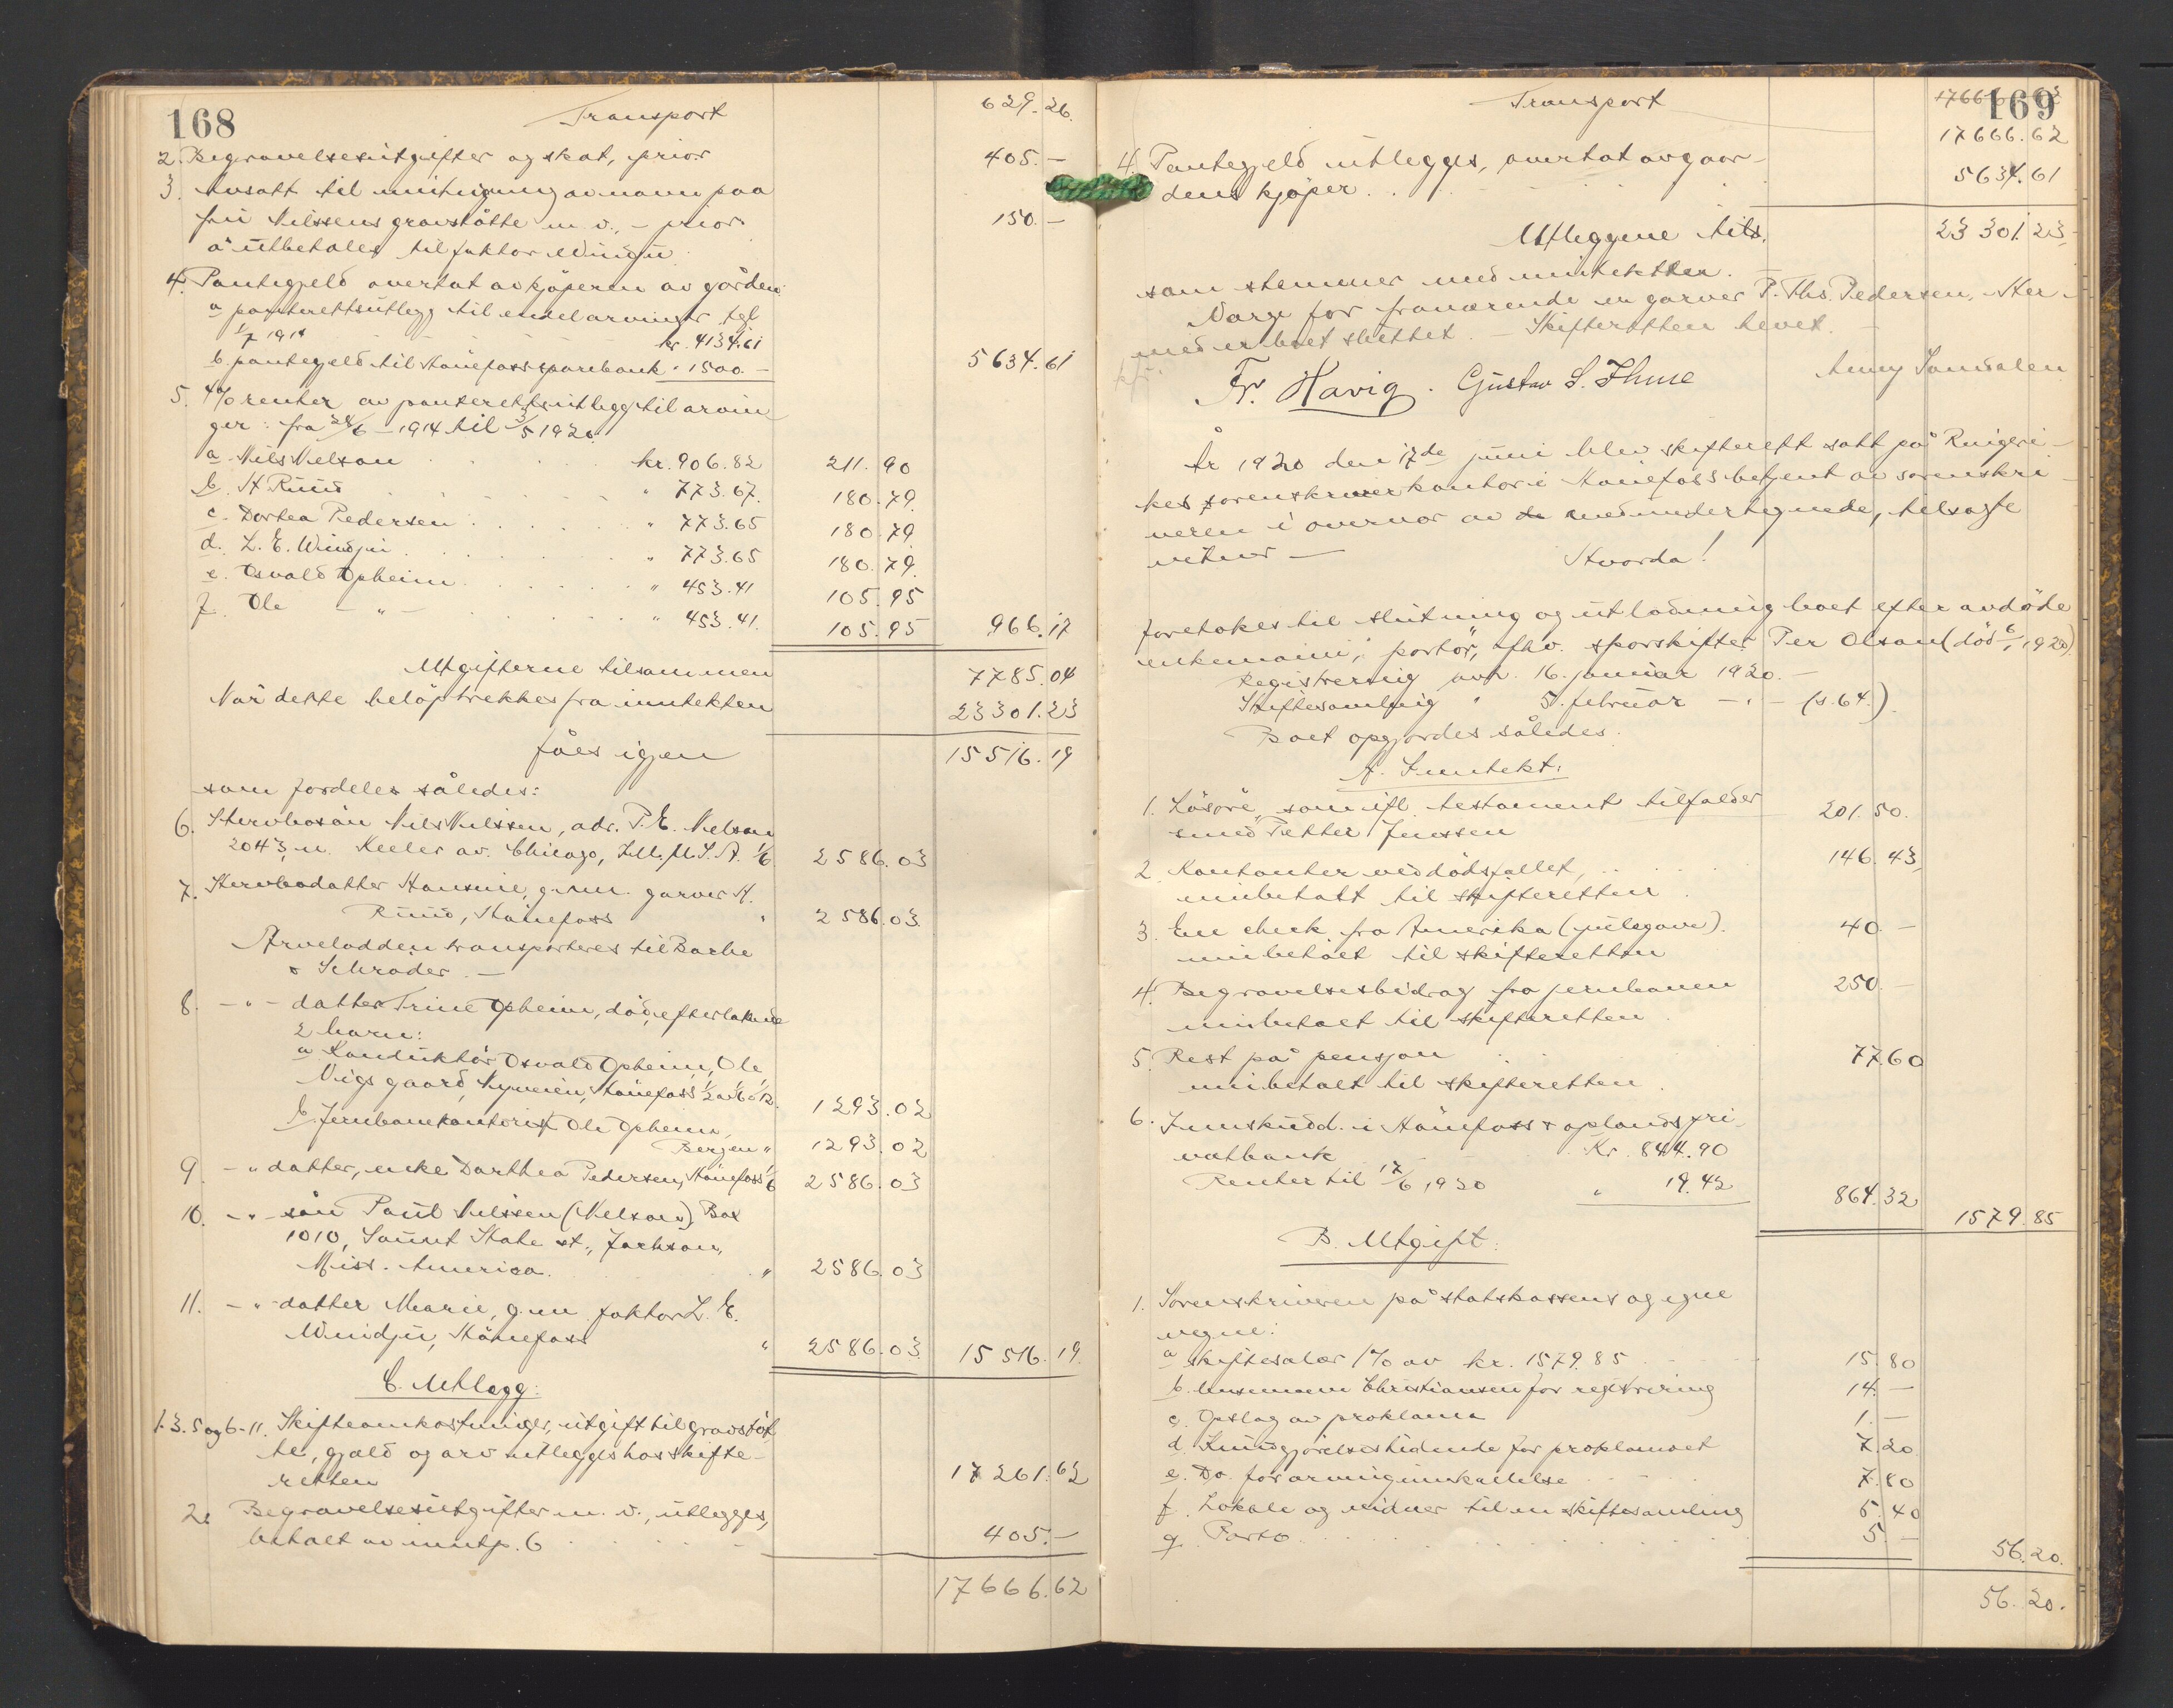 168
Transport 629.26.
2. Begravelsesutgifter og skat, prior 405.—
3. Avsatt til inhugning av navn paa
fru Nilssens gravstötte m. v., - prior 150.—
a utbetales til faktor Windju.
4. Pantegjeld overtat av kjøperen av gården
a panterettsutlegg til endel arvinger, tgl
1/7 1914 kr. 4134.61
b. pantegjeld til Hønefoss sparebank " 1500.— 5634.61
5. 4% renter av panterettsutlegg til arvin
ger: fra 24/6 - 1914 til 3/5 1920
a Nils Nelson kr. 906.82 211.90
b. H Ruud " 773.67. 180.79
c. Dortea Pedersen " 773.65 180.79
d. L. E. Windju " 773.65 180.79.
e. Osvald Opheim " 453.41 105.95
f. Ole — " — " 453.41. 105.95 966.17
Utgifterne tilsammen 7785.04
Når dette beløp trekkes fra inntekten 23301.23
fåes igjen 15516.19
som fordeles således:
6. Stervbosön Nils Nilssen, adr. P. E. Nelson
2043, n. Keeler av. Chicago, Ill. U. S. A. 1/6 2586.03
7. Stervbodatter Hansine, g. m. garver H.
Ruud, Hönefoss " 2586.03.
Arvelodden transporteres til Bache
& Schrøder. —
8. — " — datter Trine Opheim, död, efterlatende
2 barn:
a Konduktör Osvald Opheim, Ole
Vigsgaard, Nymoen, Hönefoss 1/2 av 1/6 = 1/12. 1293.02
b. Jernbanekontorist Ole Opheim,
Bergen " 1293.02
9. — " datter, enke Dorthea Pedersen, Hönefoss 1/6 2586.03
10. — " — sön Paul Nilssen (Nelson), Box
1010, Sount State st., Jackson,
Miss. America. " 2586.03
11. — " — datter Marie, g. m. faktor L. E.
Windju, Hönefoss " 2586.03. 15516.19.
C. Utlegg:
1. 3. 5 og 6-11. Skifteomkostninger, utgift til gravstöt
te, gjæld og arv utlegges hos skifte-
retten 17261.62
2. Begravelsesutgifter m. v., utlegges,
betalt av inntp. 6 405.—
17666.62
169
Transport 17666.62
17666.62
4. Pantegjeld utlegges, overtat av gaar-
dens kjøper. 5634.61
Utleggene tils. 23301.23
som stemmer med inntekten.
Verge for fraværende er garver P. Ths. Pedersen. Her-
med er boet sluttet. — Skifteretten hevet. —
Fr. Havig. Gustav S. Thune Anny Samdalen
År 1920 den 17de juni blev skifterett satt på Ringeri-
kes sorenskriverkontor i Hønefoss betjent av sorenskri-
veren i overvær av medundertegnede, tilsagte
vitner —
Hvorda!
foretokes til slutning og utlodning boet efter avdöde
enkemann, portör, fhv. sporskifter Per Olson (död 6/1 1920).
Registrering avh. 16. januar 1920. —
Skiftesamling " 5. februar — " — (s. 64.)
Boet opgjordes således.
A. Inntekt:
1. Lösöre, som ifl. testament tilfalder
smed Petter Jenssen 201.50.
2. Kontanter ved dödsfallet, 146.43,
innbetalt til skifteretten.
3. En check fra Amerika (julegave). 40.—
innbetalt til skifteretten
4. Begravelsesbidrag fra jernbanen 250.—
innbetalt til skifteretten.
5. Rest på pensjon 77.60
innbetalt til skifteretten.
6. Innskudd i Hönefoss & oplands pri-
vatbank Kr. 844.90
Renter til 17/6 1920 " 19.42 864.32 1579.85
B. Utgift:
1. Sorenskriveren på statskassens og egne
vegne:
a skiftesalær 1% av kr. 1579.85 15.80
b. lensmann Christiansen for registrering 14.—
c. Opslag av proklama 1.—
d. Kundgjörelsestidende for proklamaet 7.20.
e. Do. for arvinginnkallelse 7.80
f. Lokale og vidner til en skiftesamling 5.40
g. Porto 5.— 56.20.
56.20.